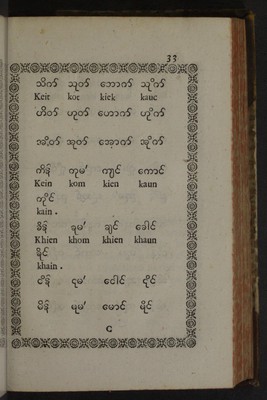 33
သိက် သုတ် ဘောက် သုိက်
Keit kot kiek kauc
ဟိတ် ဟုတ် ဟောက် ဟုိက်
အိတ် အုတ် အောက် အုိက်
ကိန် ကုမ် ကျင် ကောင်
Kein kom kien kaun
ကုိင်
kain .
ခိန် ခုမ် ချင် ခေါင်
Khien khom khien khaun
ခုိင်
khain .
ငိန် ငုမ် ငေါင် ငုိင်
မိန် မုမ် မောင် မုိင်
C